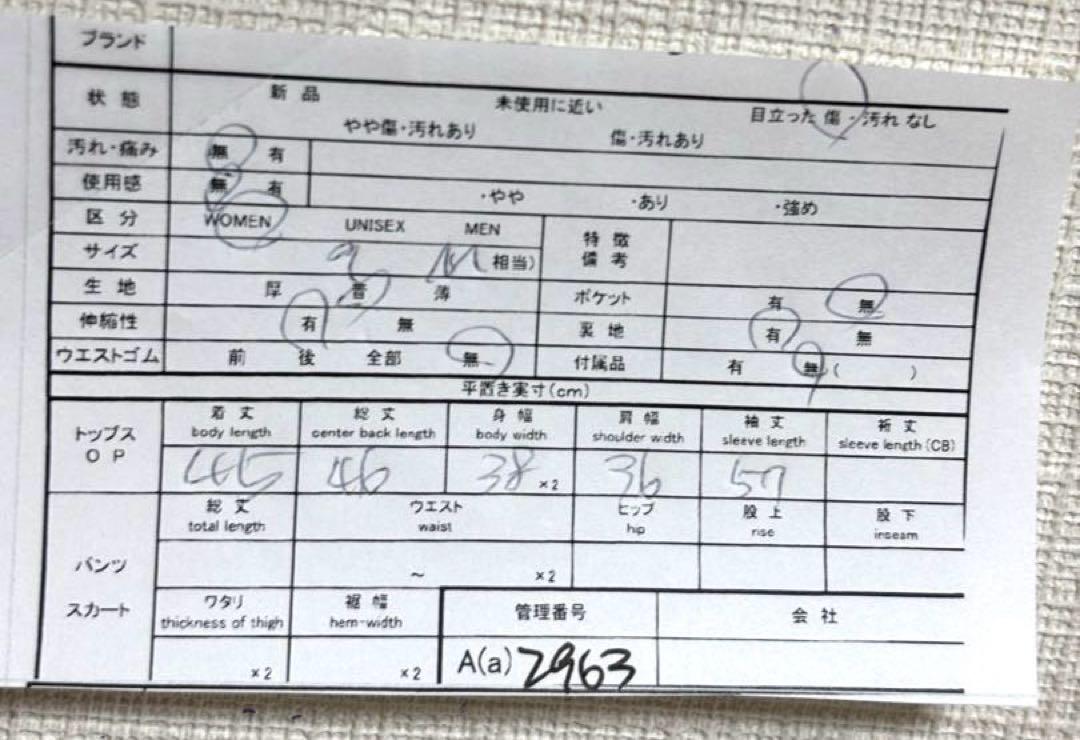 ブランド
状態 新品 未使用に近い 目立った傷・汚れなし
やや傷・汚れあり 傷・汚れあり
汚れ・痛み 無 有
使用感 無 有 ・やや ・あり ・強め
区分 WOMEN UNISEX MEN 特徴
サイズ 9 M 相当) 備考
生地 厚 普 薄 ポケット 有 無
伸縮性 有 無 裏地 有 無
ウエストゴム 前 後 全部 無 付属品 有 無 ( )
平置き実寸(cm)
トップス OP 着丈 総丈 身幅 肩幅 袖丈 裄丈
body length center back length body width shoulder wdth sleeve length sleeve length (CB)
46 38 ×2 36 57
総丈 ウエスト ヒップ 股上 股下
total length waist hip rise inseam
パンツ ～ ×2
スカート ワタリ 裾幅 管理番号 会社
thickness of thigh hem-width
×2 ×2 A(a) 2963